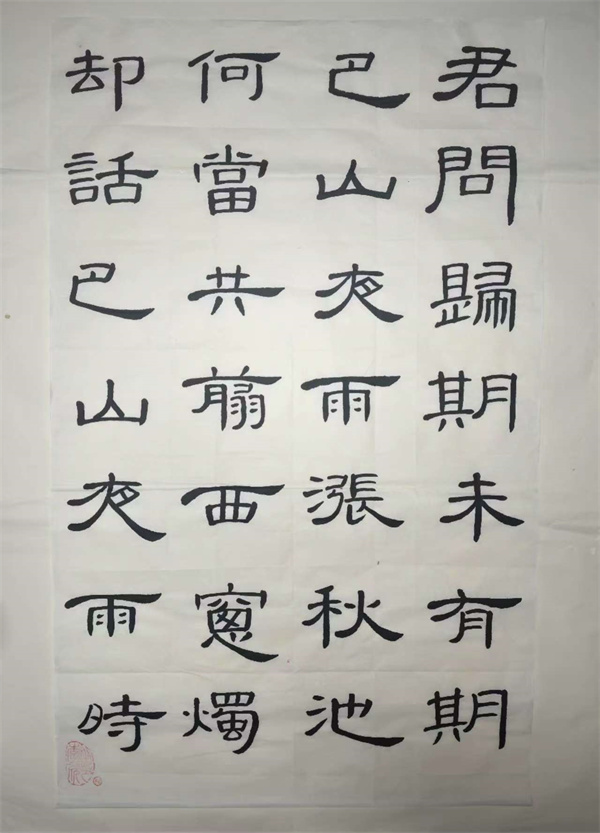 君問歸期未有期
巴山夜雨漲秋池
何當共翦西窻燭
却話巴山夜雨時